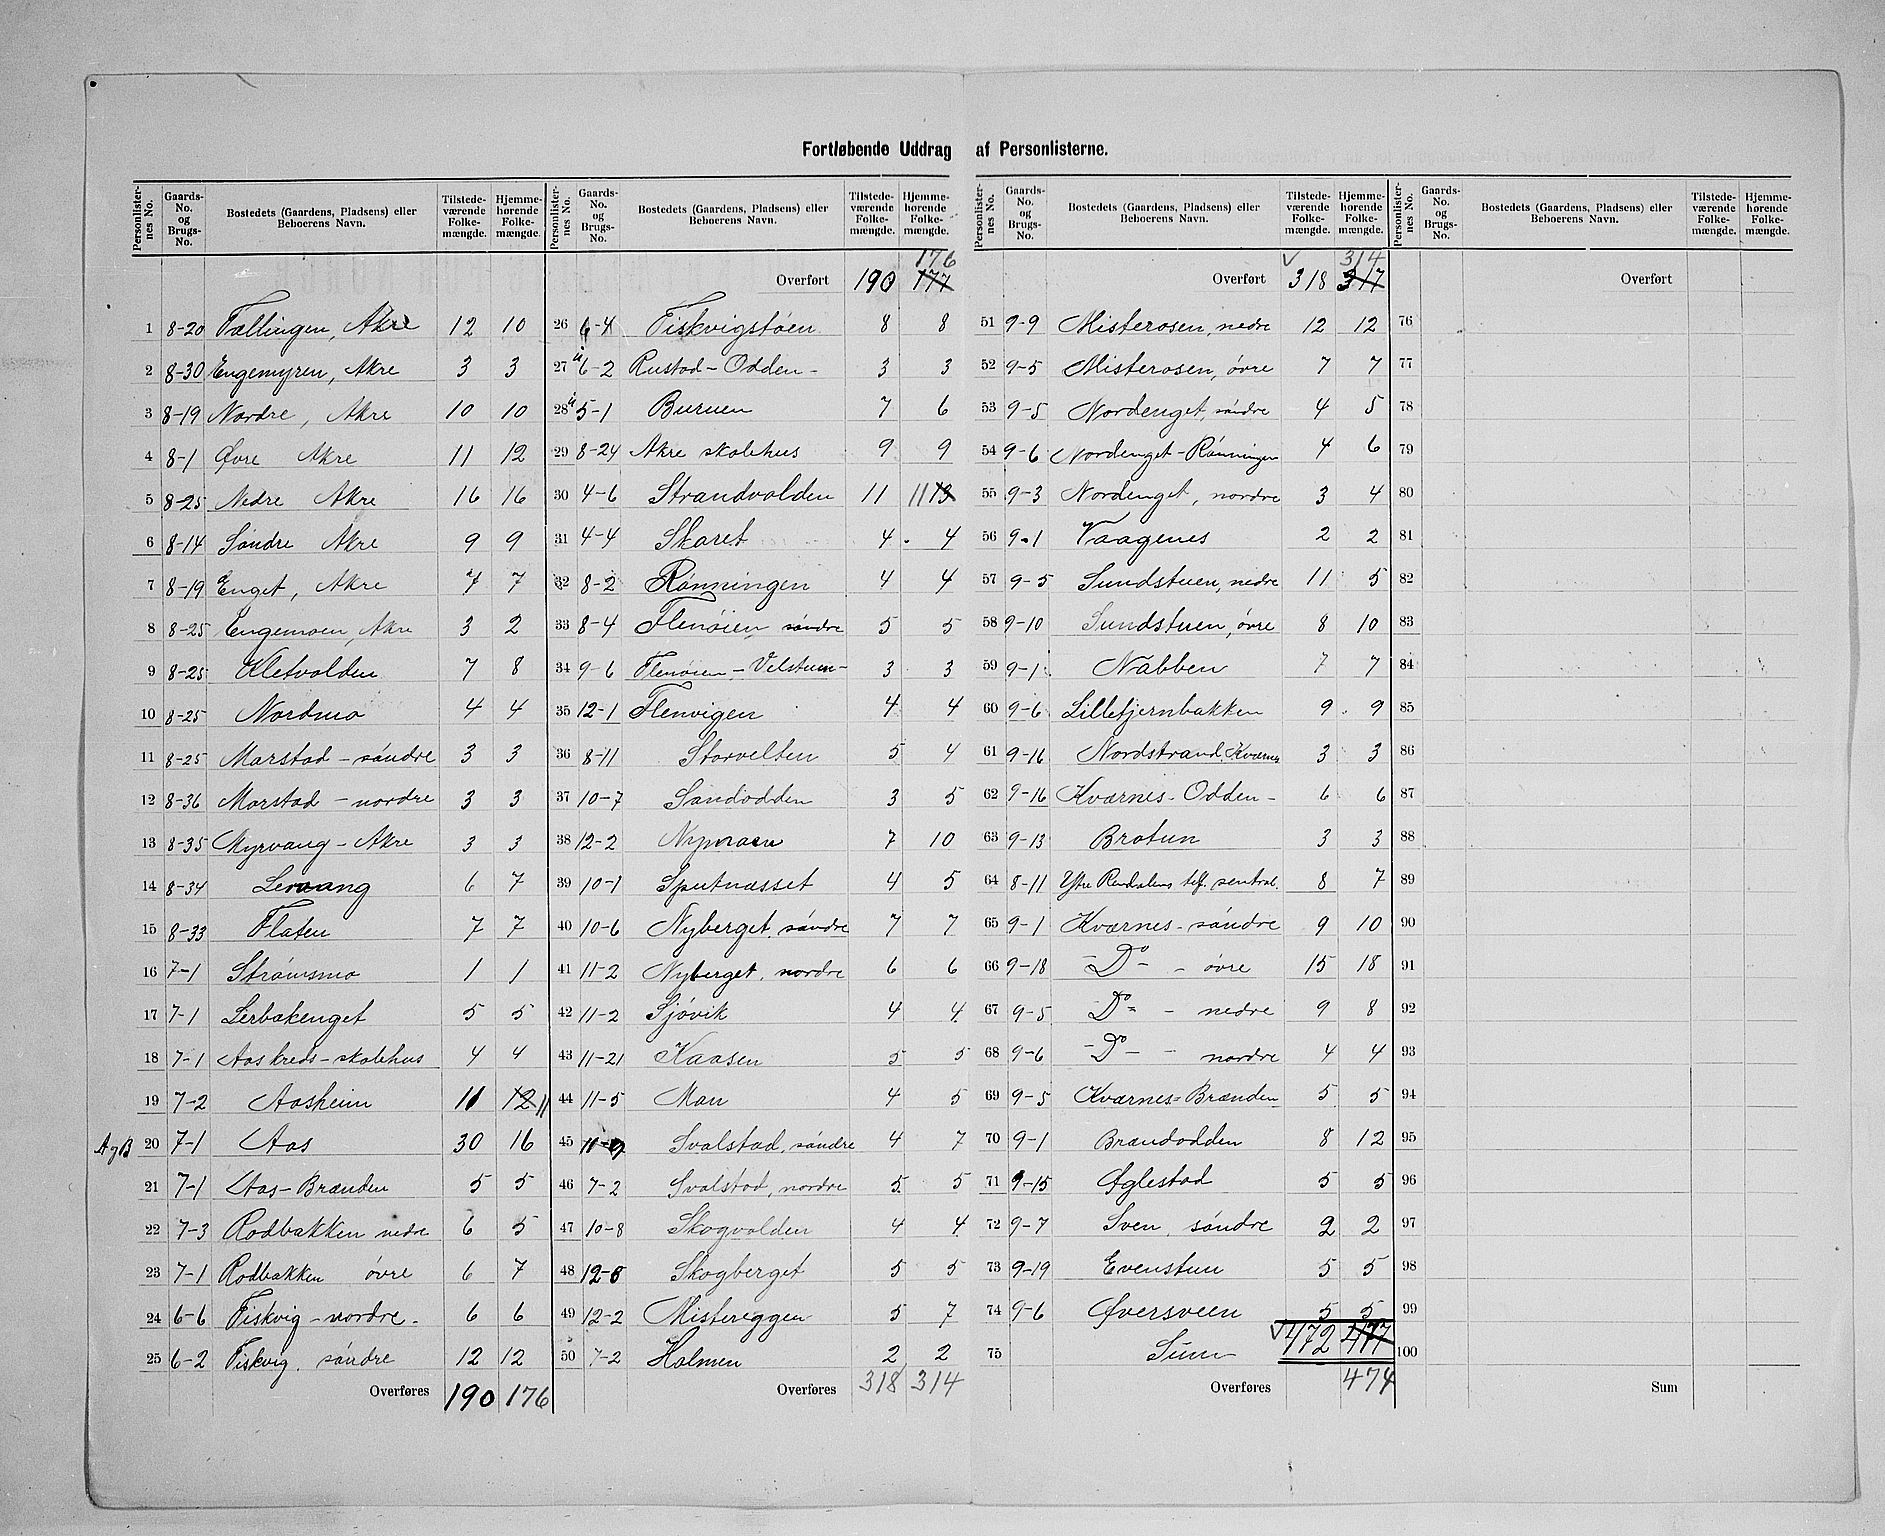 Fortløbende Uddrag af Personlisterne.
Personlisternes No. | Gaards-No. og Brugs-No. | Bostedets (Gaardens, Pladsens) eller Beboerens Navn. | Tilstedeværende Folkemængde. | Hjemmehørende Folkemængde.
1 8-20 Fællingen, Akre 12 10
2 8-30 Engemyren, Akre 3 3
3 8-19 Nordre, Akre 10 10
4 8-1 Øvre Akre 11 12
5 8-25 Nedre Akre 16 16
6 8-14 Søndre Akre 9 9
7 8-19 Enget, Akre 7 7
8 8-25 Engemoen, Akre 3 2
9 8-25 Kletvolden 7 8
10 8-25 Nordmo 4 4
11 8-25 Morstad - søndre 3 3
12 8-36 Morstad - nordre 3 3
13 8-35 Myrvang - Akre 3 3
14 8-34 Lervang 6 7
15 8-33 Flaten 7 7
16 7-1 Strømsmo 1 1
17 7-1 Lerbakenget 5 5
18 7-1 Aaskreds-skolehus 4 4
19 7-2 Aasheim 11 12 11
A og B 20 7-1 Aas 30 16
21 7-1 Aas-Brænden 5 5
22 7-3 Rodbakken nedre 6 5
23 7-1 Rodbakken øvre 6 7
24 6-6 Fiskvig - nordre - 6 6
25 6-2 Fiskvig, søndre 12 12
Overføres 190 176
Personlisternes No. | Gaards-No. og Brugs-No. | Bostedets (Gaardens, Pladsens) eller Beboerens Navn. | Tilstedeværende Folkemængde. | Hjemmehørende Folkemængde.
176
Overført 190 177
26 6-4 Fiskvigstøen 8 8
27 6-2 Rustad - Odden - 3 3
28 5-1 Buruen 7 6
29 8-24 Akre skolehus 9 9
30 4-6 Strandvolden 11 11 13
31 4-4 Skaret 4 4
32 8-2 Rønningen 4 4
33 8-4 Flenøien søndre 5 5
34 9-6 Flenøien - Velstuen - 3 3
35 12-1 Flenvigen 4 4
36 8-11 Storvelten 5 4
37 10-7 Sandodden 3 5
38 12-2 Nymoen 7 10
39 10-1 Sputnæsset 4 5
40 10-6 Nyberget, søndre 7 7
41 11-2 Nyberget, nordre 6 6
42 11-2 Sjøvik 4 4
43 11-21 Kaasen 5 5
44 11-5 Mon 4 5
45 11-9 Svalstad, søndre 4 7
46 7-2 Svalstad, nordre 5 5
47 10-8 Skogvolden 4 4
48 12-8 Skogberget 5 5
49 12-2 Mistereggen 5 7
50 7-2 Holmen 2 2
Overføres 318 314
Personlisternes No. | Gaards-No. og Brugs-No. | Bostedets (Gaardens, Pladsens) eller Beboerens Navn. | Tilstedeværende Folkemængde. | Hjemmehørende Folkemængde.
314
Overført 318 317
51 9-9 Misterosen, nedre 12 12
52 9-5 Misterosen, øvre 7 7
53 9-5 Nordenget, søndre 4 5
54 9-6 Nordenget - Rønningen 4 6
55 9-3 Nordenget, nordre 3 4
56 9-1 Vaagenes 2 2
57 9-5 Sundstuen, nedre 11 5
58 9-10 Sundstuen, øvre 8 10
59 9-1 Nabben 7 7
60 9-6 Lilletjernbakken 9 9
61 9-16 Nordstrand, Kværnes 3 3
62 9-16 Kværnes - Odden - 6 6
63 9-13 Brotun 3 3
64 8-11 Ytre Rendalens telf. sentral. 8 7
65 9-1 Kværnes - søndre 9 10
66 9-18 - Do - - øvre 15 18
67 9-5 - Do - nedre 9 8
68 9-6 - Do - - nordre 4 4
69 9-5 Kværnes - Brænden 5 5
70 9-1 Brændodden 8 12
71 9-15 Øglestad 5 5
72 9-7 Sven, søndre 2 2
73 9-19 Evenstun 5 5
74 9-6 Øversveen 5 5
75 Sum 472 477
Overføres 474
Personlisternes No. | Gaards-No. og Brugs-No. | Bostedets (Gaardens, Pladsens) eller Beboerens Navn. | Tilstedeværende Folkemængde. | Hjemmehørende Folkemængde.
Overført
76
77
78
79
80
81
82
83
84
85
86
87
88
89
90
91
92
93
94
95
96
97
98
99
100
Sum